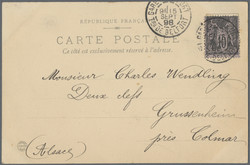 RÉPUBLIQUE FRANÇAISE
CARTE POSTALE
Ce côté est exclusivement réservé à l'adresse.
SEPT
98
Monsieur Charles Wendling
Deux clefs
Grussenheim
près Colmar
(Alsace)